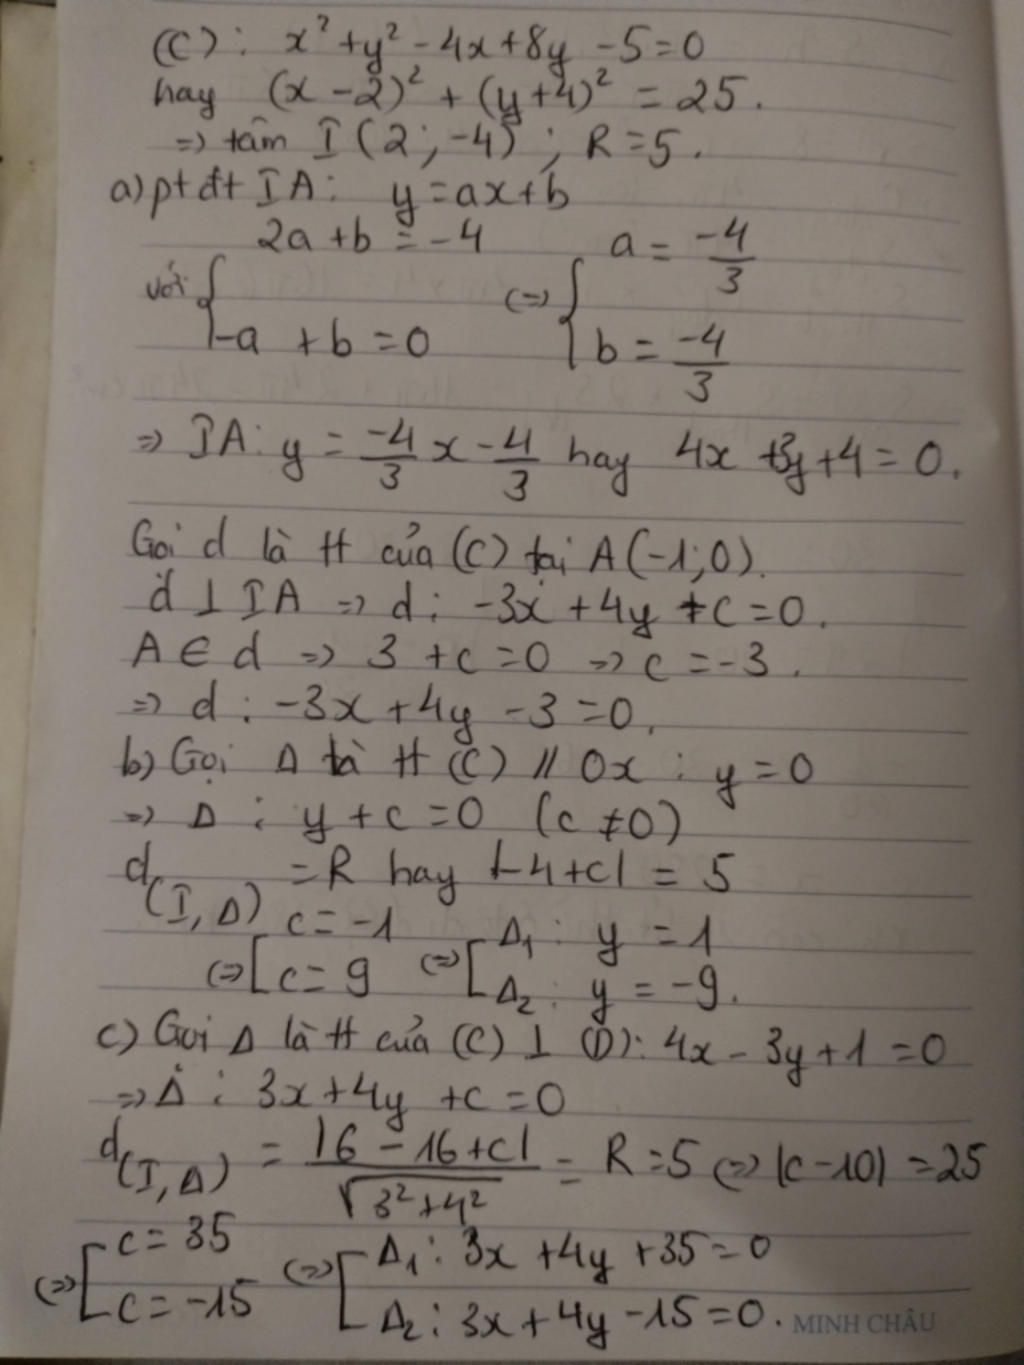 (C): x² + y² - 4x + 8y - 5 = 0
hay (x - 2)² + (y + 4)² = 25.
=> tâm I (2; -4) ; R = 5.
a) pt đt IA: y = ax + b
với { 2a + b = -4 (=) { a = -4/3
-a + b = 0 b = -4/3
=> IA: y = -4/3 x - 4/3 hay 4x + 3y + 4 = 0.
Gọi d là tt của (C) tại A(-1;0).
d ⊥ IA => d: -3x + 4y + c = 0.
A ∈ d => 3 + c = 0 => c = -3.
=> d: -3x + 4y - 3 = 0.
b) Gọi Δ là tt (C) // Ox : y = 0
=> Δ : y + c = 0 (c ≠ 0)
d(I, Δ) = R hay |-4 + c| = 5
(=) [ c = -1 (=) [ Δ₁ : y = 1
c = 9 Δ₂ : y = -9.
c) Gọi Δ là tt của (C) ⊥ (D): 4x - 3y + 1 = 0
=> Δ : 3x + 4y + c = 0
d(I, Δ) = |6 - 16 + c| / √(3² + 4²) = R = 5 (=) |c - 10| = 25
(=) [ c = 35 (=) [ Δ₁ : 3x + 4y + 35 = 0
c = -15 Δ₂ : 3x + 4y - 15 = 0.
MINH CHÂU